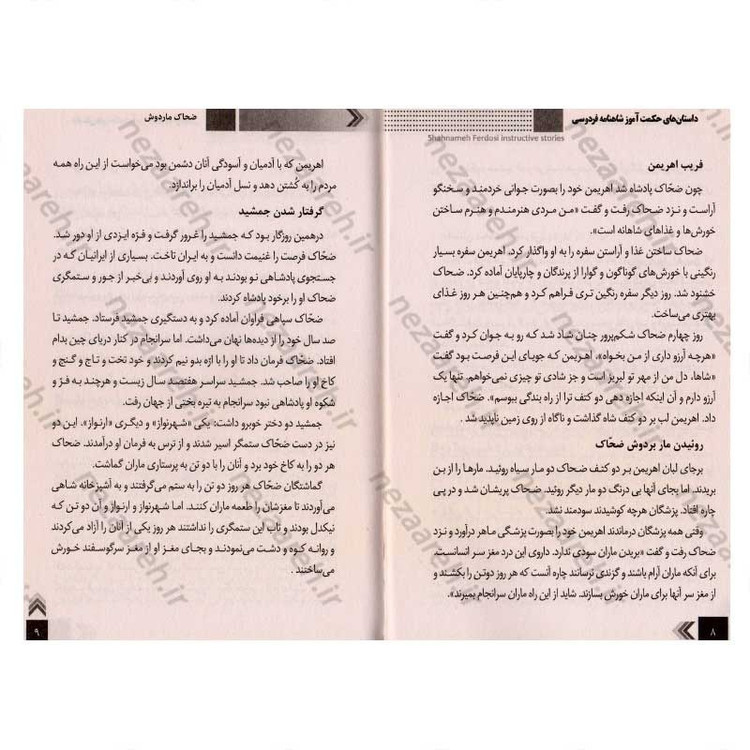 داستان‌های حکمت آموز شاهنامه فردوسی
Shahnameh Ferdosi instructive stories
فریب اهریمن
چون ضحّاک پادشاه شد اهریمن خود را بصورت جوانی خردمند و سخنگو
آراست و نزد ضحاک رفت و گفت «من مردی هنرمندم و هنرم ساختن
خورش‌ها و غذاهای شاهانه است».
ضحاک ساختن غذا و آراستن سفره را به او واگذار کرد. اهریمن سفره بسیار
رنگینی با خورش‌های گوناگون و گوارا از پرندگان و چارپایان آماده کرد. ضحاک
خشنود شد. روز دیگر سفره رنگین تری فراهم کرد و هم‌چنین هر روز غذای
بهتری می‌ساخت.
روز چهارم ضحاک شکم‌پرور چنان شاد شد که رو به جوان کرد و گفت
«هرچه آرزو داری از من بخواه». اهریمن که جویای این فرصت بود گفت
«شاها، دل من از مهر تو لبریز است و جز شادی تو چیزی نمی‌خواهم. تنها یک
آرزو دارم و آن اینکه اجازه دهی دو کتف ترا از راه بندگی ببوسم». ضحاک اجازه
داد. اهریمن لب بر دو کتف شاه گذاشت و ناگاه از روی زمین ناپدید شد .
روئیدن مار بردوش ضحّاک
برجای لبان اهریمن بر دو کتف ضحاک دو مار سیاه روئید. مارها را از بن
بریدند. اما بجای آنها بی درنگ دو مار دیگر روئید. ضحاک پریشان شد و در پی
چاره افتاد. پزشکان هرچه کوشیدند سودمند نشد.
وقتی همه پزشکان درماندند اهریمن خود را بصورت پزشکی ماهر درآورد و نزد
ضحاک رفت و گفت «بریدن ماران سودی ندارد. داروی این درد مغز سر انسانست.
برای آنکه ماران آرام باشند و گزندی نرسانند چاره آنست که هر روز دوتن را بکشند و
از مغز سر آنها برای ماران خورش بسازند. شاید از این راه ماران سرانجام بمیرند».
۸
ضحاک ماردوش
اهریمن که با آدمیان و آسودگی آنان دشمن بود می‌خواست از این راه همه
مردم را به کُشتن دهد و نسل آدمیان را براندازد.
گرفتار شدن جمشید
درهمین روزگار بود که جمشید را غرور گرفت و فرّه ایزدی از او دور شد.
ضحّاک فرصت را غنیمت دانست و به ایران تاخت. بسیاری از ایرانیان که در
جستجوی پادشاهی نو بودند به او روی آوردند و بی‌خبر از جور و ستمگری
ضحاک او را برخود پادشاه کردند.
ضحّاک سپاهی فراوان آماده کرد و به دستگیری جمشید فرستاد. جمشید تا
صد سال خود را از دیده‌ها نهان می‌داشت. اما سرانجام در کنار دریای چین بدام
افتاد. ضحّاک فرمان داد تا او را با اژه بدو نیم کردند و خود تخت و تاج و گنج و
کاخ او را صاحب شد. جمشید سراسر هفتصد سال زیست و هرچند به فرّ و
شکوه او پادشاهی نبود سرانجام به تیره بختی از جهان رفت.
جمشید دو دختر خوبرو داشت: یکی «شهرنواز» و دیگری «ارنواز». این دو
نیز در دست ضحّاک ستمگر اسیر شدند و از ترس به فرمان او درآمدند. ضحاک
هر دو را به کاخ خود برد و آنان را با دو تن به پرستاری ماران گماشت.
گماشتگان ضحّاک هر روز دو تن را به ستم می‌گرفتند و به آشپزخانه شاهی
می‌آوردند تا مغزشان را طعمه ماران کنند. اما شهرنواز و ارنواز و آن دو تن که
نیکدل بودند و تاب این ستمگری را نداشتند هر روز یکی از آنان را آزاد می‌کردند
و روانه کوه و دشت می‌نمودند و بجای مغز او از مغز سرگوسفند خورش
می‌ساختند .
۹
nezaareh.ir